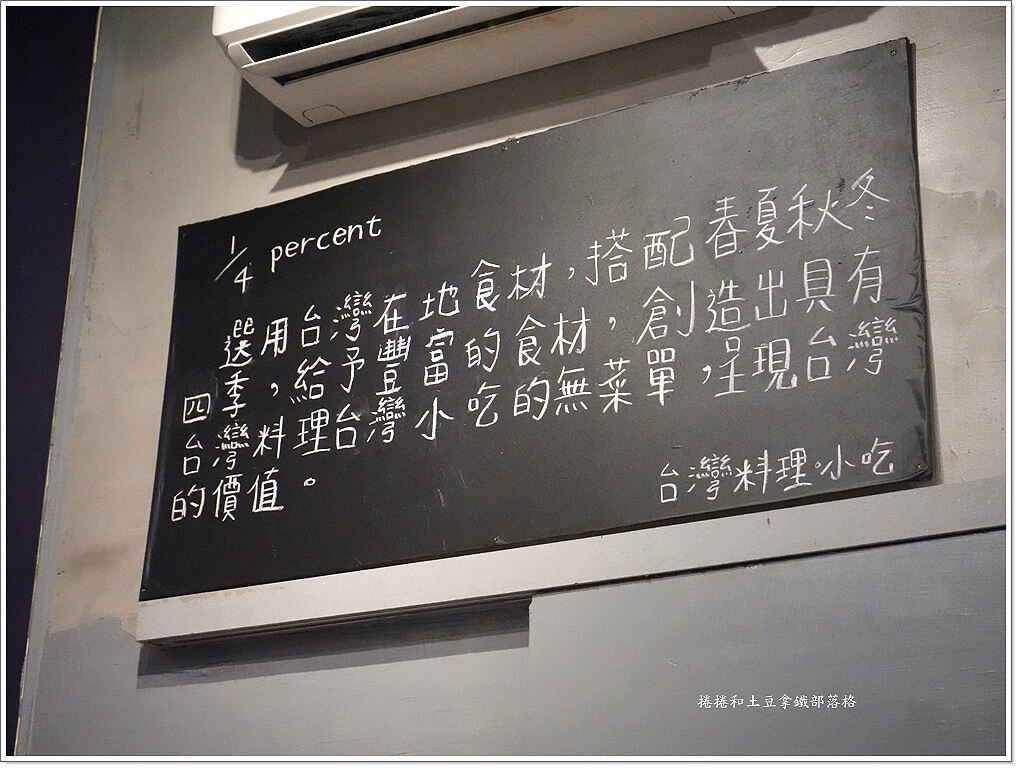 1/4 percent
選用台灣在地食材，搭配春夏秋冬
四季，給予豐富的食材，創造出具有
台灣料理台灣小吃的無菜單，呈現台灣
的價值。
台灣料理。小吃
捲捲和土豆拿鐵部落格